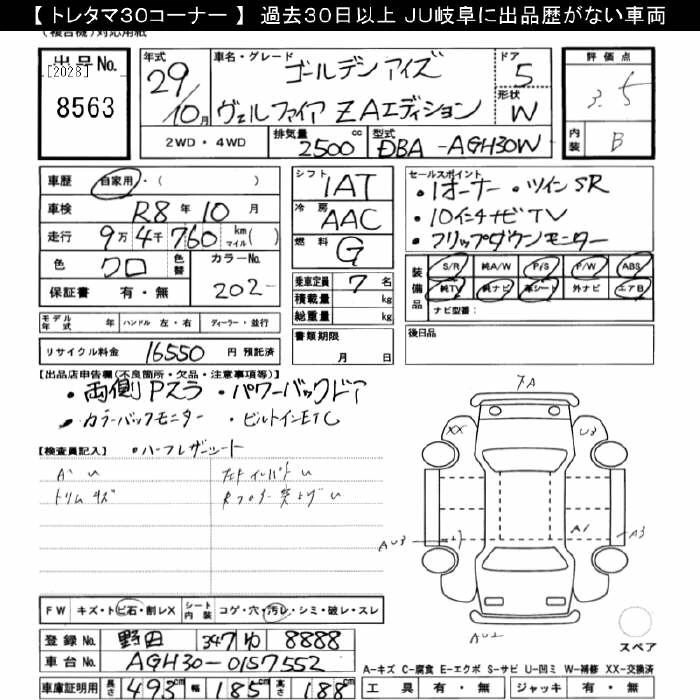 【トレタマ30コーナー】 過去30日以上 JU岐阜に出品歴がない車両
(複合機)対応用紙
出品No. [2028] 8563
年式 29/10月
車名・グレード ゴールデンアイズ
ヴェルファイア ZAエディション
ドア 5
形状 W
評価点 3.5
内装 B
2WD・4WD 排気量 2500 cc 型式 DBA-AGH30W
車歴 自家用・( )
車検 R8年10月
走行 9万4千760 km マイル( )
色 クロ 色替 カラーNo. 202-
保証書 有・無
シフト 1AT
冷房 AAC
燃料 G
乗車定員 7名
積載量 kg
総重量 kg
書類期限 月 日
セールスポイント
・1オーナー ・ツインSR
・10インチナビTV
・フリップダウンモニター
装備品 S/R 純A/W P/S P/W ABS
純TV 純ナビ 革シート 外ナビ エアB
ナビ型番:
後日品
モデル年式 年 ハンドル 左・右 ディーラー・並行
リサイクル料金 16550 円 預託済
【出品店申告欄(不良箇所・欠品・注意事項等)】
・両側Pスラ ・パワーバックドア
・カラーバックモニター ・ビルトインETC
【検査員記入】 ・ハーフレザーシート
トリムキズ
FW キズ・トビ石・割レX シート内装 コゲ・穴・汚レ・シミ・破レ・スレ
XX U3
A1 A3
AU3
AU2
スペア
登録No. 野田 347 ゆ 8888
車台No. AGH30-0157552
車庫証明用 長さ 493cm 幅 185cm 高さ 188cm
A-キズ C-腐食 E-エクボ S-サビ U-凹ミ W-補修 XX-交換済
工具 有・無 ジャッキ 有・無